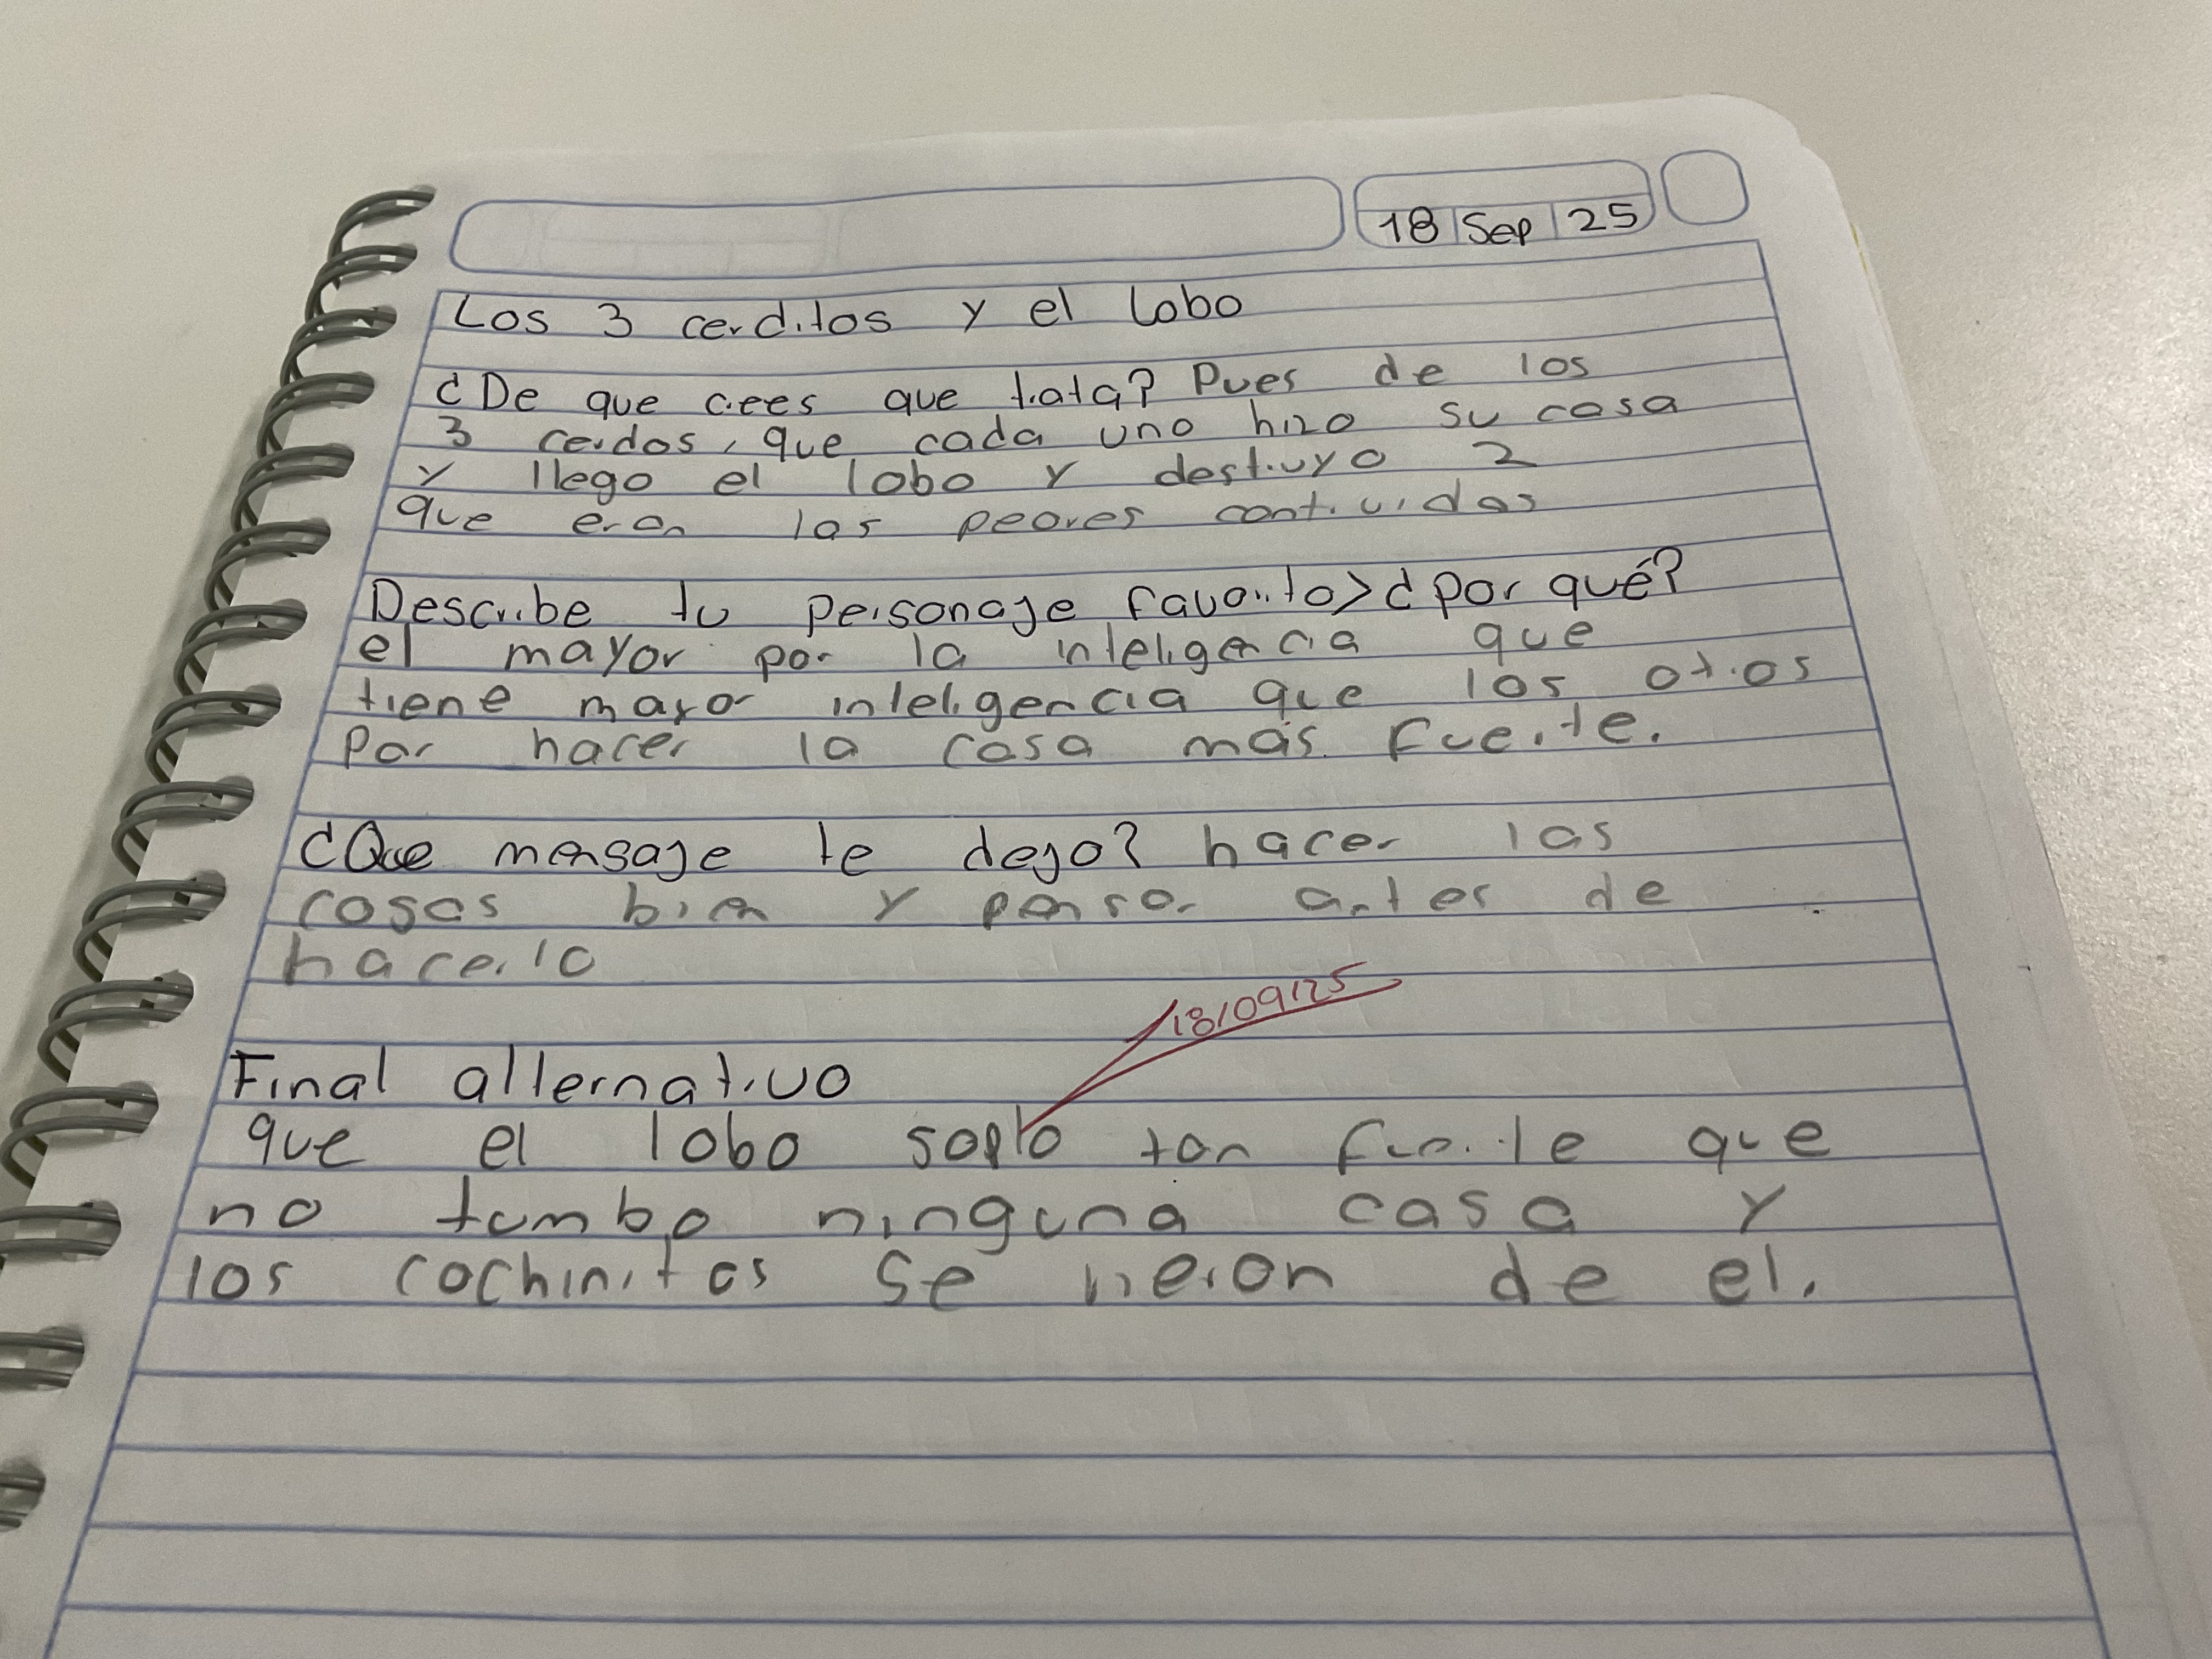 18 Sep 25
Los 3 cerditos y el lobo
¿De que crees que trata? Pues de los
3 cerdos, que cada uno hizo su casa
y llego el lobo y destruyo 2
que eran las peores contruidas
Describe tu personaje favorito> ¿por qué?
el mayor por la inteligencia que
tiene mayor inteligencia que los otros
por hacer la casa más fuerte.
¿Que mensaje te dejo? hacer las
cosas bien y pensar antes de
hacerlo
18/09/25
Final alternativo
que el lobo soplo tan fuerte que
no tumbo ninguna casa y
los cochinitos se rieron de el.